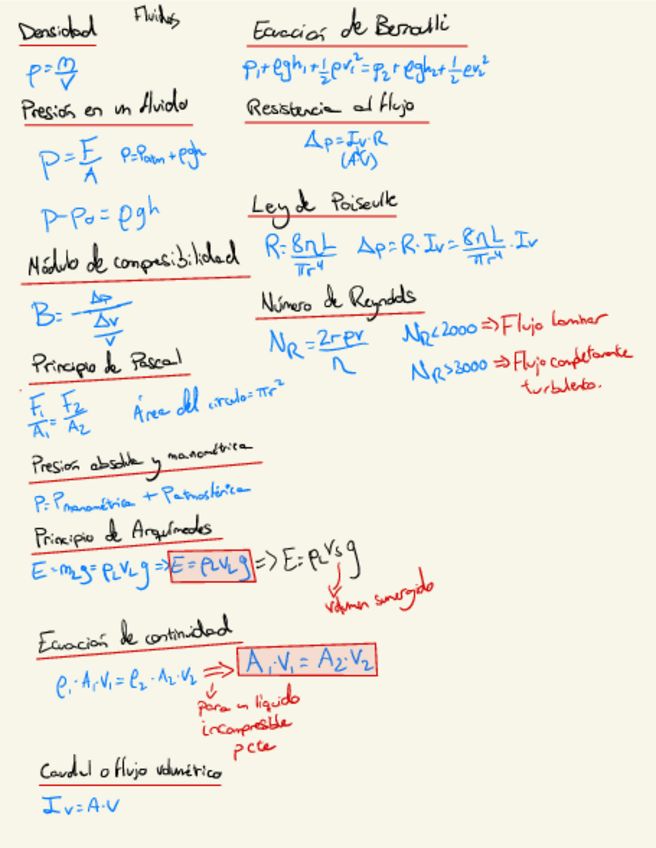 Fluidos
Densidad
ρ = m/V
Presión en un fluido
P = F/A P = Patm + ρgh
P - P₀ = ρgh
Módulo de compresibilidad
B = - Δp / (ΔV/V)
Principio de Pascal
F₁/A₁ = F₂/A₂ Área del círculo = πr²
Presión absoluta y manométrica
P = Pmanométrica + Patmosférica
Principio de Arquímedes
E = m_L g = ρ_L V_L g ⇒ E = ρ_L V_L g ⇒ E = ρ_L V_S g
volumen sumergido
Ecuación de continuidad
ρ₁·A₁·V₁ = ρ₂·A₂·V₂ ⇒ A₁·V₁ = A₂·V₂
para un líquido
incompresible
ρ cte
Caudal o flujo volumétrico
I_V = A·V
Ecuación de Bernoulli
P₁ + ρgh₁ + ½ρv₁² = P₂ + ρgh₂ + ½ρv₂²
Resistencia al flujo
Δp = I_V·R
(A·V)
Ley de Poiseuille
R = 8ηL/πr⁴ Δp = R·I_V = 8ηL/πr⁴ · I_V
Número de Reynolds
N_R = 2rρv/η N_R < 2000 ⇒ Flujo laminar
N_R > 3000 ⇒ Flujo completamente
turbulento.